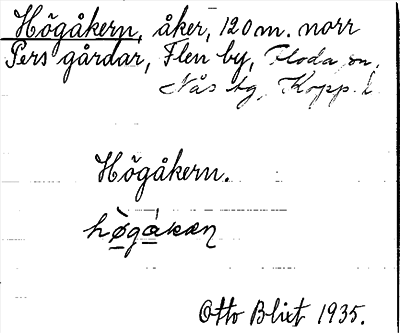 Högåkern, åker, 120 m. norr
Pers gårdar, Flen by, Floda sn,
Nås tg, Kopp. l.
Högåkern.
hø̀gákæɳ
Otto Blixt 1935.